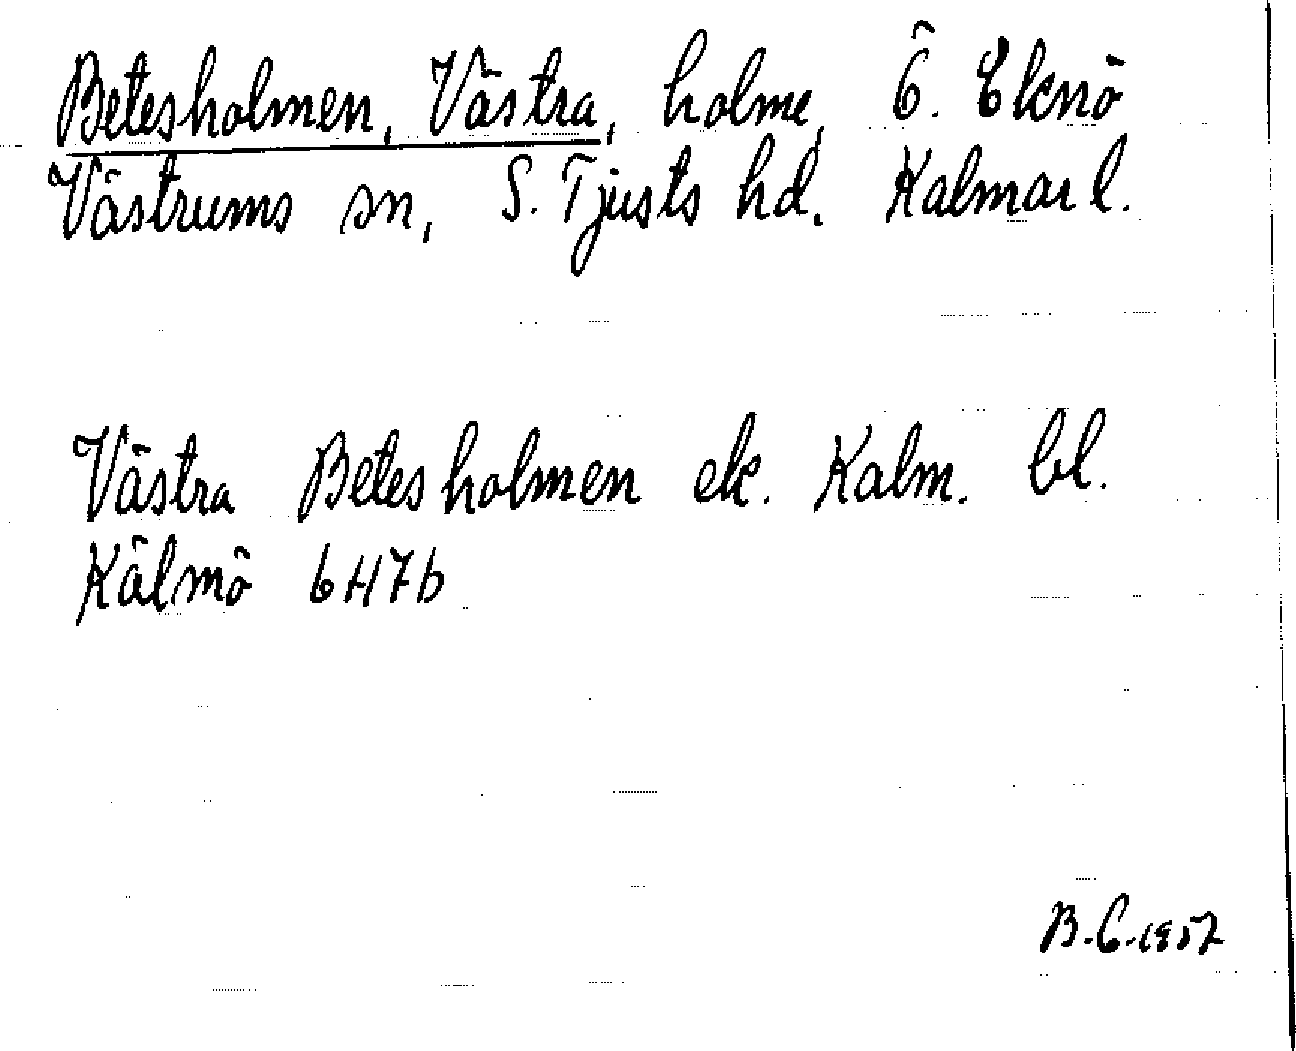 Betesholmen, Västra, holme, Ö. Eknö
Västrums sn, S. Tjusts hd. Kalmar l.
Västra Betesholmen ek. Kalm. bl.
Kälmö 6H7b
B.C. 1957